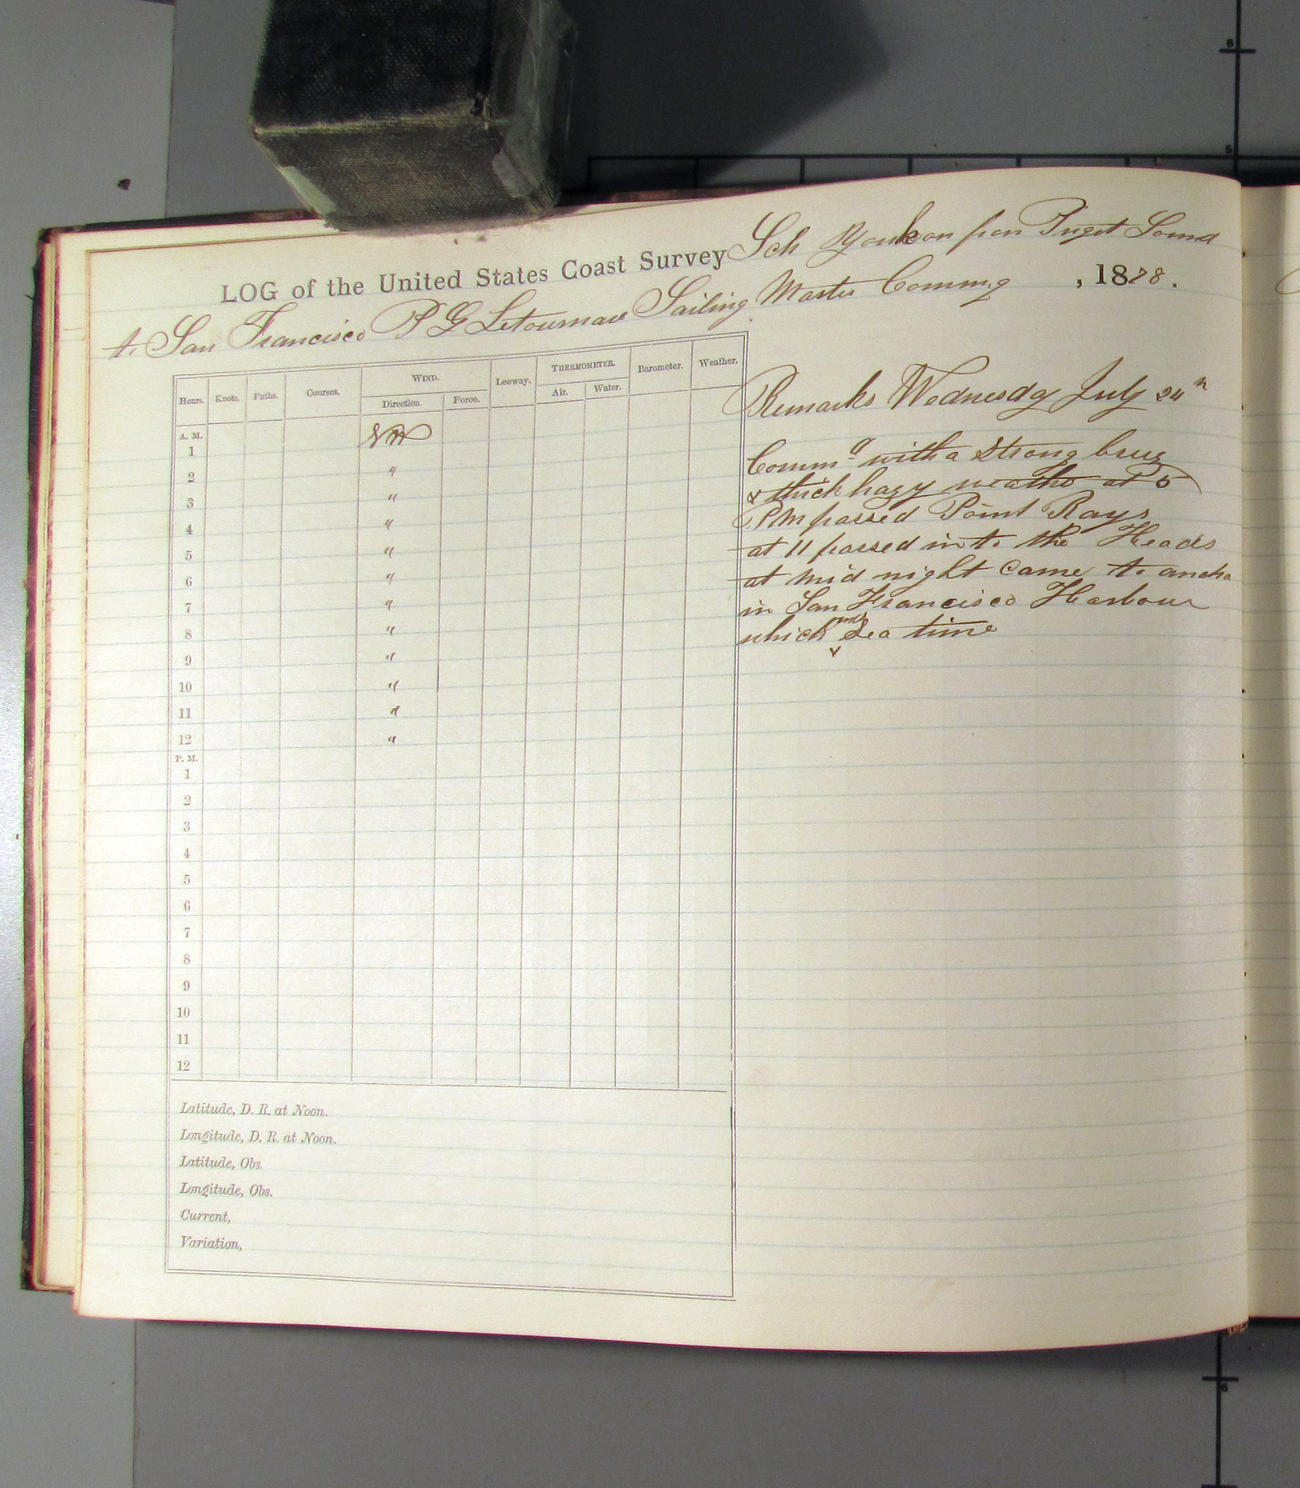 LOG of the United States Coast Survey Sch Yonkon from Puget Sound
to San Francisco P G Letournau Sailing Master Comm.g , 1878.
Hours. Knots. Faths. Courses. WIND. Leeway. THERMOMETER. Barometer. Weather.
Direction. Force. Air. Water.
Remarks Wednesday July 24th
A. M.
1 NW
2 "
3 "
4 "
5 "
6 "
7 "
8 "
9 "
10 "
11 "
12 "
P. M.
1
2
3
4
5
6
7
8
9
10
11
12
Comm.g with a Strong breeze
& thick hazy weather at 5
P.M passed Point Rays
at 11 passed in to the Heads
at mid night came to ancho
in San Francisco Harbour
which ends Sea time
Latitude, D. R. at Noon.
Longitude, D. R. at Noon.
Latitude, Obs.
Longitude, Obs.
Current,
Variation,